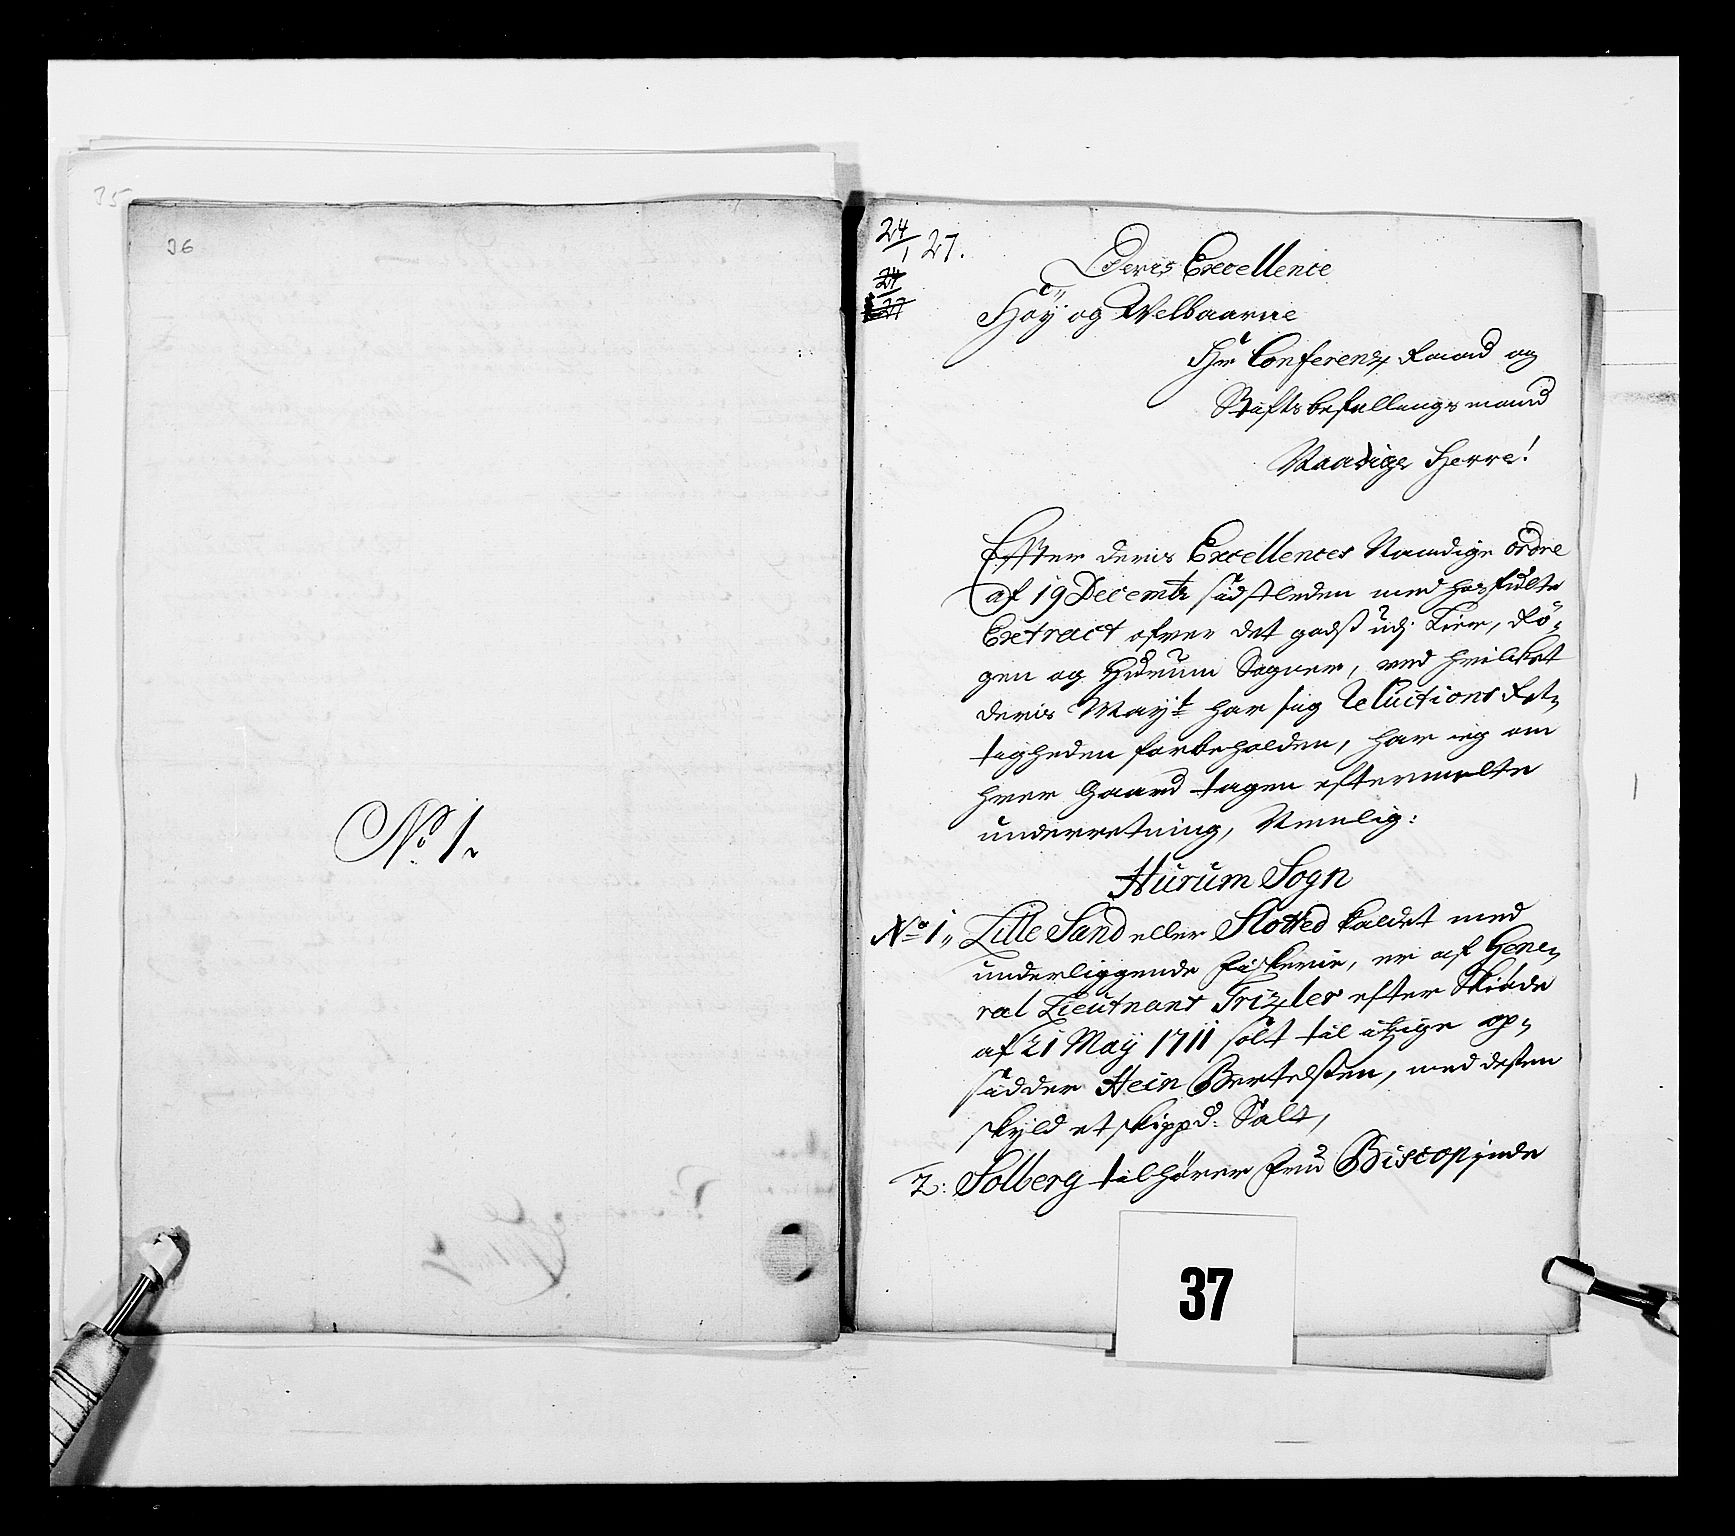 35
36
No 1.
24/1 27.
24
27
Deris Excellence
Höy og Welbaarne
Hr Conferenz Raad og
Stiftsbefallingsmand
Naadige Herre!
Effter deris Excellences Naadige ordre
af 19 Decembr sidstleden med hosfulte
Extract ofver det godß udj Lier, Rö-
gen og Hurum Sogner, ved hvilcket
deris Mayt har sig Reluctions Ret-
tigheden forbeholden, har ieg om
hver Gaard tagen eftermelte
underretning, Nemlig:
Hurum Sogn
No 1, Lille Sand eller Slotted kaldet med
underliggende fiskerie, er af Gene-
ral Lieutnant Trizler efter Skiöde
af 21 May 1711 solt til itzige op-
sidder Hein Bertelsten, med desten
skyld et skippd: Salt,
2: Solberg tilhörer Fru Biscopinde
37